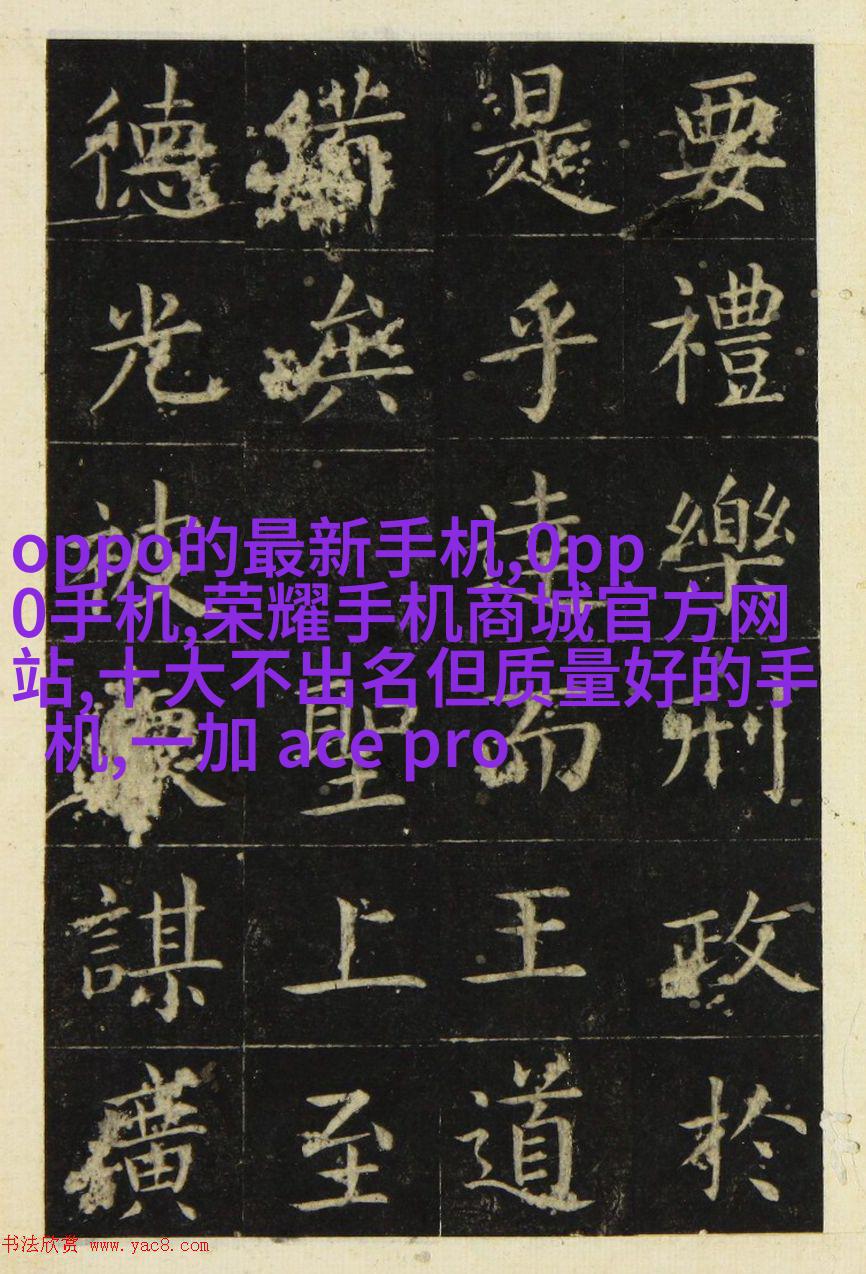 oppo的最新手机,0pp
0手机,荣耀手机商城官方网
站,十大不出名但质量好的手
机,一加 ace pro
要禮樂刑政於
是乎達而王道
聖上至
德光被謀廣
书法欣赏 www.yac8.com